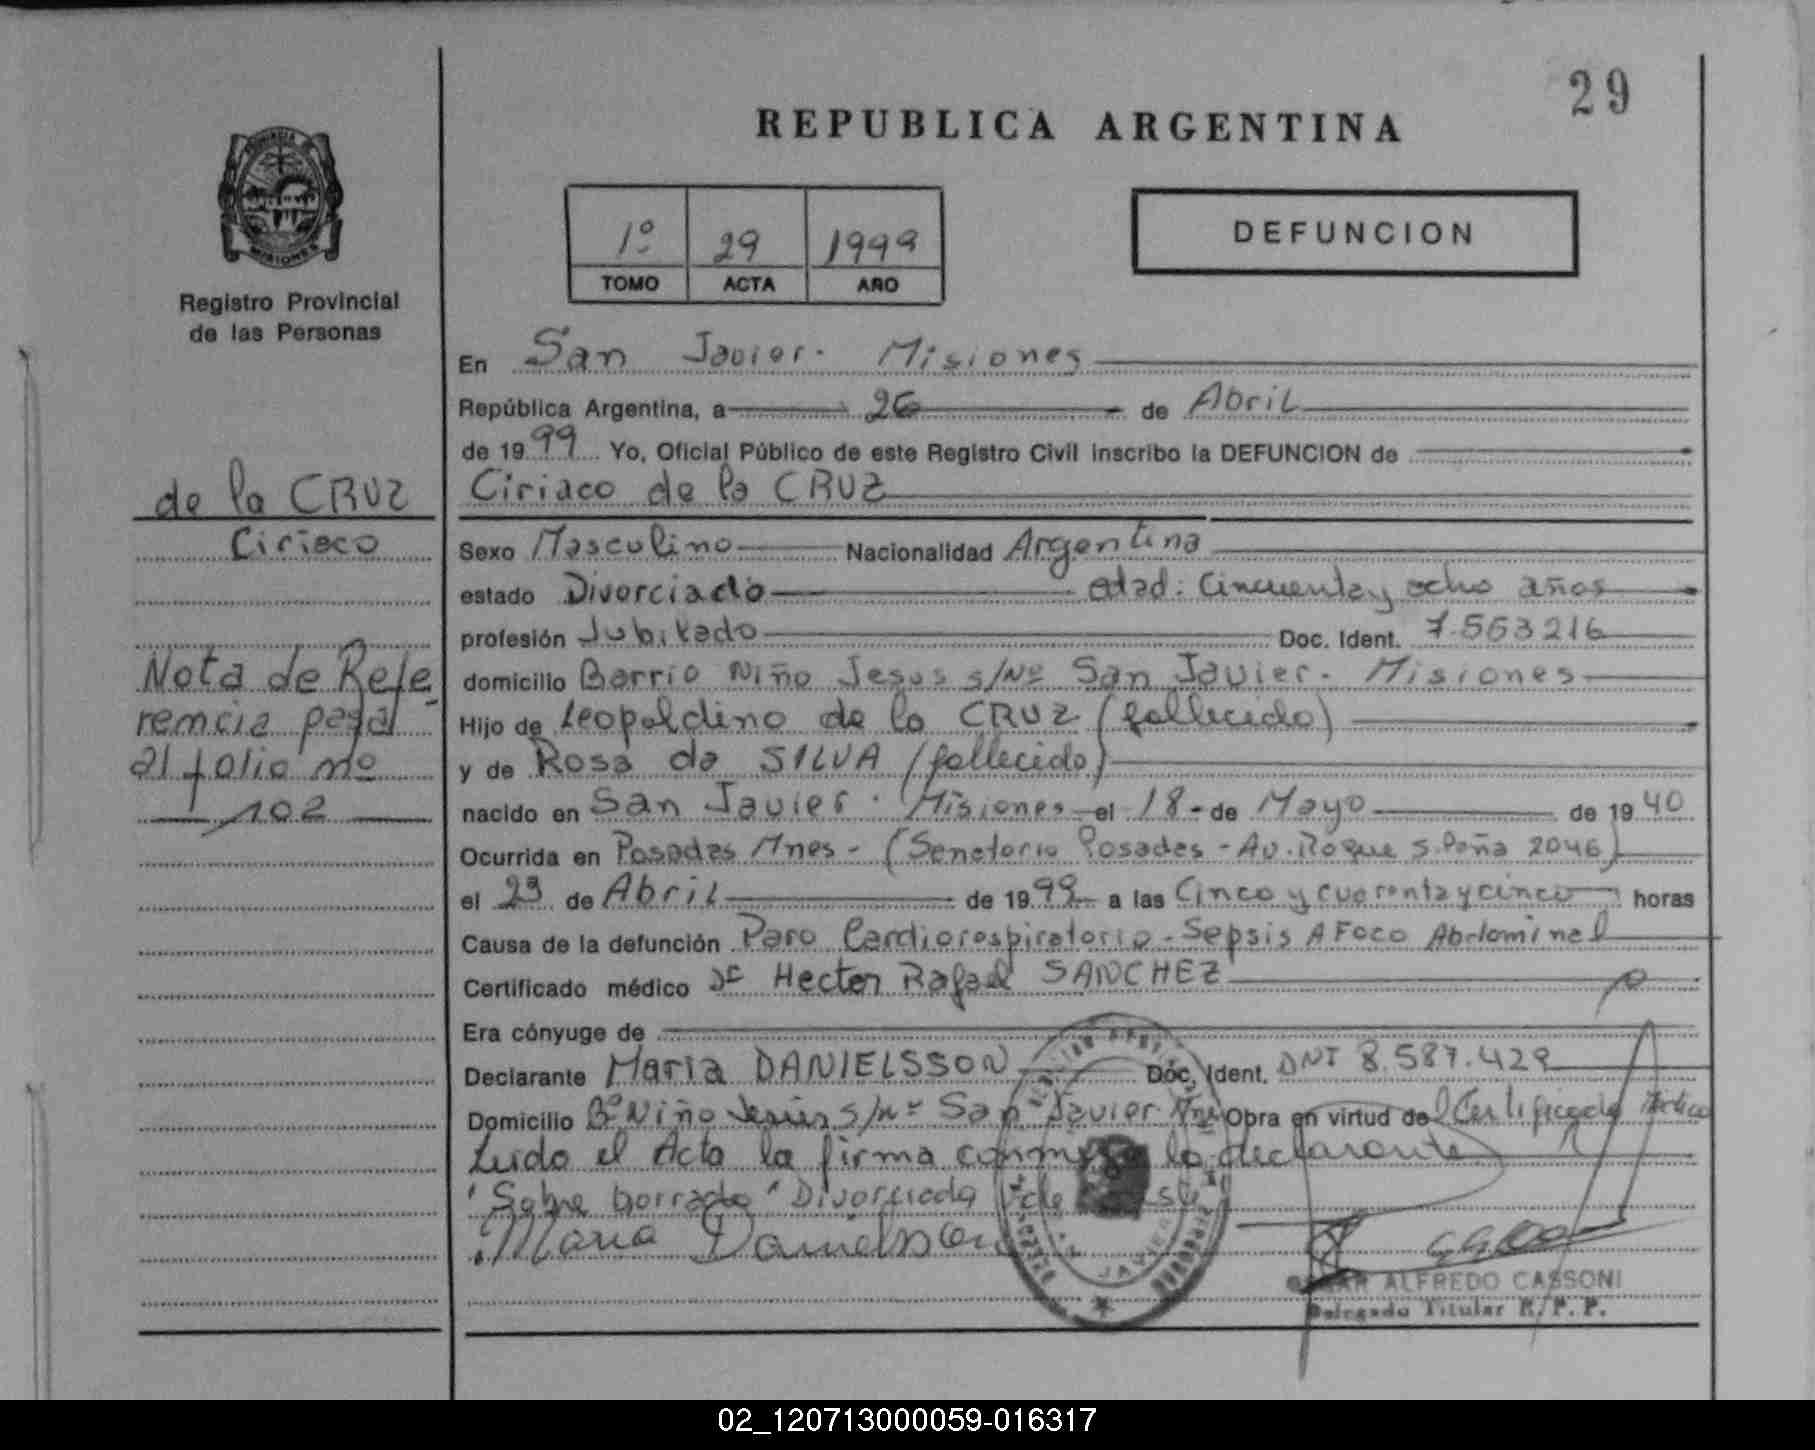 29
REPUBLICA ARGENTINA
PROVINCIA DE
MISIONES
Registro Provincial
de las Personas
1º 29 1999
TOMO ACTA AÑO
DEFUNCION
de la CRUZ
Ciriaco
Nota de Refe
rencia pasa
al folio nº
102
En San Javier. Misiones
República Argentina, a 26 de Abril
de 1999 Yo, Oficial Público de este Registro Civil inscribo la DEFUNCION de
Ciriaco de la CRUZ
Sexo Masculino Nacionalidad Argentina
estado Divorciado edad: Cincuenta y ocho años
profesión Jubilado Doc. Ident. 7.563216
domicilio Barrio Niño Jesus s/Nº San Javier. Misiones
Hijo de Leopoldino de la CRUZ (fallecido)
y de Rosa da SILVA (fallecida)
nacido en San Javier. Misiones el 18 de Mayo de 1940
Ocurrida en Posadas Mnes - (Senatorio Posadas - Av. Roque S. Peña 2046)
el 23 de Abril de 1999 a las Cinco y cuarenta y cinco horas
Causa de la defunción Paro Cardiorespiratorio - Sepsis A Foco Abdominal
Certificado médico Dr Hector Rafael SANCHEZ
Era cónyuge de
Declarante Maria DANIELSSON Doc. Ident. DNI 8.587.429
Domicilio Bº Niño Jesús s/nº San Javier Mnes Obra en virtud del Certificado Médico
Leido el Acta la firma conmigo la declarante
"Sobre borrado" Divorciado
Maria Danielsson
JAVIER
ALFREDO CASSONI
Delegado Titular R. P. P.
02_120713000059-016317